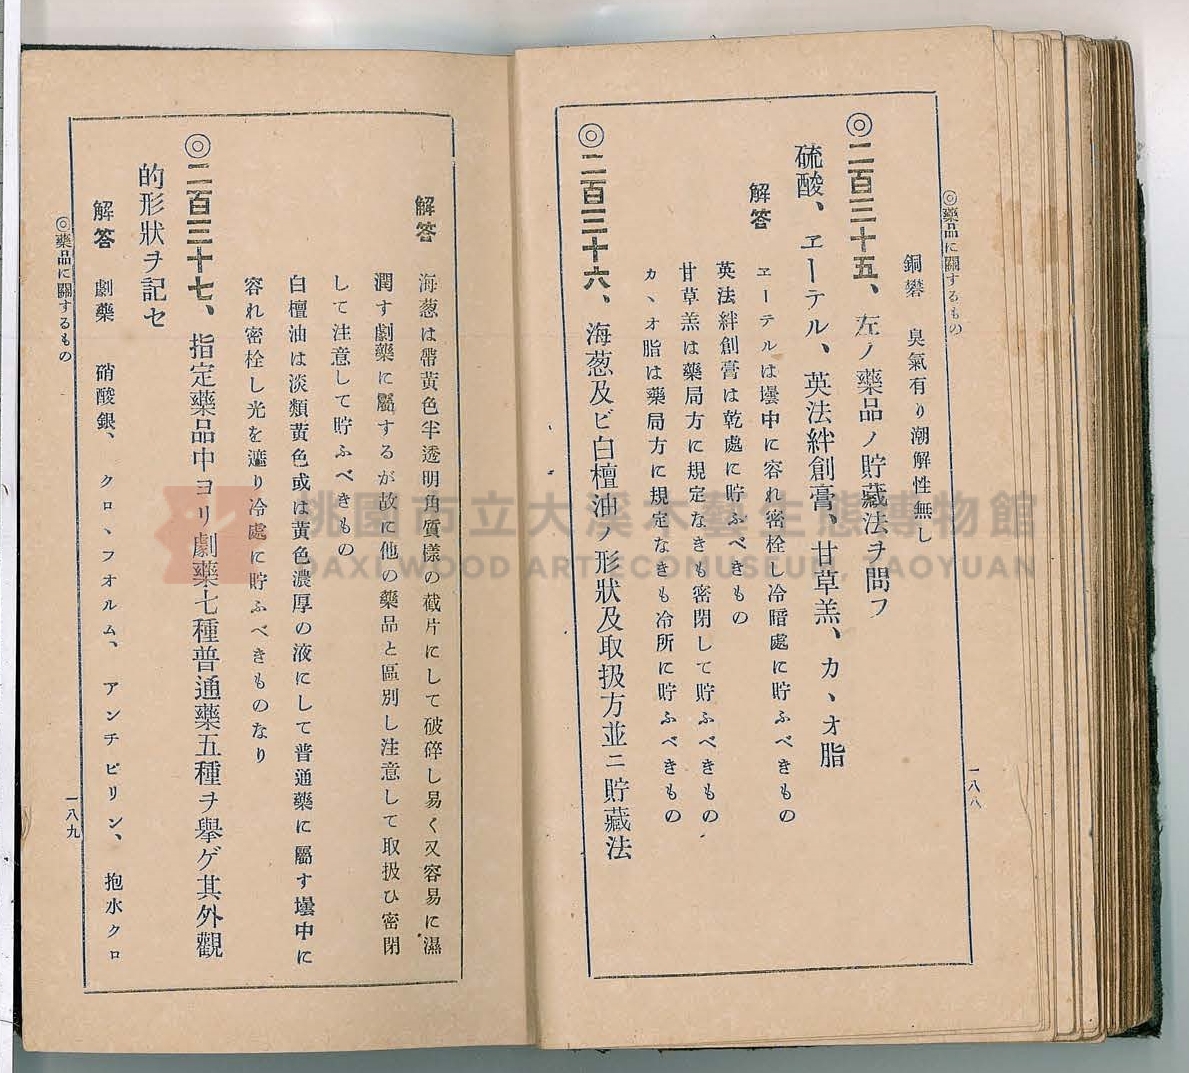 ◎藥品に關するもの
銅礬　臭氣有り潮解性無し
◎二百三十五、左ノ藥品ノ貯藏法ヲ問フ
硫酸、ヱーテル、英法絆創膏、甘草羔、カヽオ脂
解答
ヱーテルは壜中に容れ密栓し冷暗處に貯ふべきもの
英法絆創膏は乾處に貯ふべきもの
甘草羔は藥局方に規定なきも密閉して貯ふべきもの
カヽオ脂は藥局方に規定なきも冷所に貯ふべきもの
◎二百三十六、海葱及ビ白檀油ノ形狀及取扱方並ニ貯藏法
一八八
解答　海葱は帶黄色半透明角質樣の截片にして破碎し易く又容易に濕
潤す劇藥に屬するが故に他の藥品と區別し注意して取扱ひ密閉
して注意して貯ふべきもの
白檀油は淡類黄色或は黄色濃厚の液にして普通藥に屬す壜中に
容れ密栓し光を遮り冷處に貯ふべきものなり
◎二百三十七、指定藥品中ヨリ劇藥七種普通藥五種ヲ擧ゲ其外觀
的形狀ヲ記セ
解答　劇藥　硝酸銀、クロヽフオルム、アンチピリン、抱水クロ
◎藥品に關するもの
一八九
桃園市立大溪木藝生態博物館
DAXI WOOD ART ECOMUSEUM, TAOYUAN